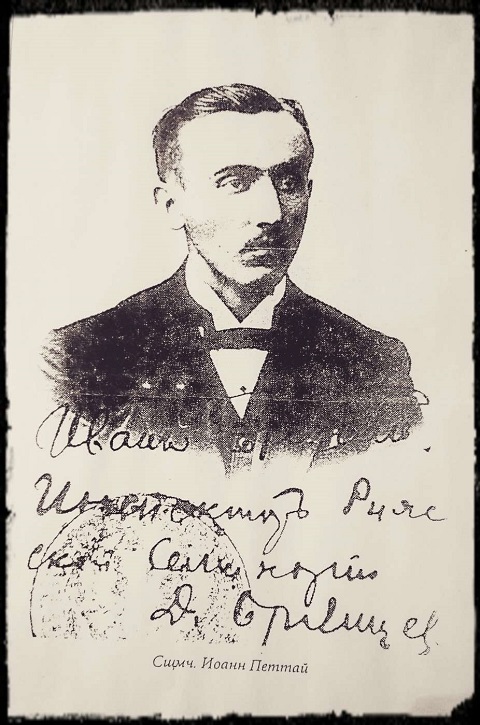 Иванъ
Инспекторъ Риж
ской Семинаріи
Д.
Сщмч. Иоанн Петтай